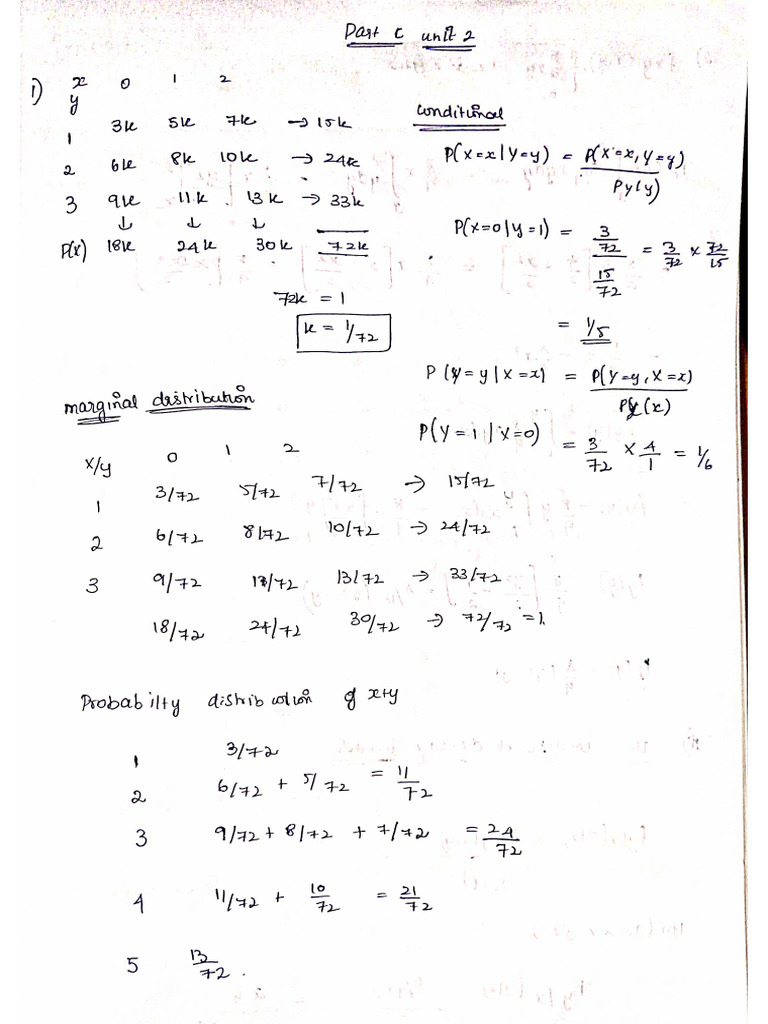 Part C unit 2
1) x 0 1 2
y
1 3k 5k 7k → 15k
2 6k 8k 10k → 24k
3 9k 11k 13k → 33k
↓ ↓ ↓
P(x) 18k 24k 30k 72k
72k = 1
k = 1/72
conditional
P(X=x|Y=y) = P(X=x, Y=y) / Py(y)
P(X=0|Y=1) = 3/72 / 15/72 = 3/72 × 72/15
= 1/5
P(Y=y|X=x) = P(Y=y, X=x) / Px(x)
P(Y=1|X=0) = 3/72 × 4/1 = 1/6
marginal distribution
x/y 0 1 2
1 3/72 5/72 7/72 → 15/72
2 6/72 8/72 10/72 → 24/72
3 9/72 11/72 13/72 → 33/72
18/72 24/72 30/72 → 72/72 = 1.
Probabilty distribution of x+y
1 3/72
2 6/72 + 5/72 = 11/72
3 9/72 + 8/72 + 7/72 = 24/72
4 11/72 + 10/72 = 21/72
5 13/72.